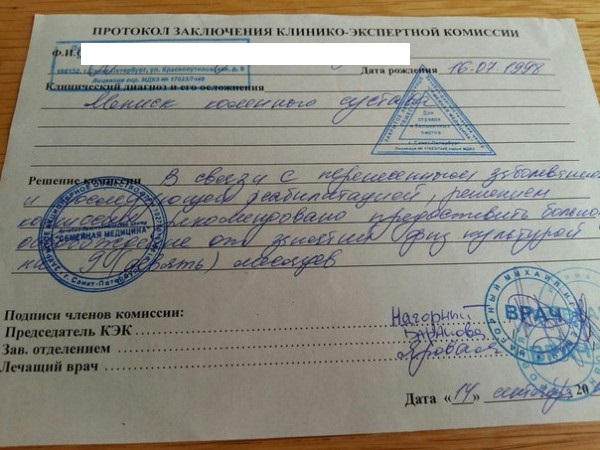 ПРОТОКОЛ ЗАКЛЮЧЕНИЯ КЛИНИКО-ЭКСПЕРТНОЙ КОМИССИИ
Ф.И.
ул. Краснопутиловская, д.
Лицензия сер. МДКЗ № 17023/7448
Дата рождения 16.07.1998
Клинический диагноз и его осложнения
Мениск коленного сустава
Для справок и больничных листов
г. Санкт-Петербург
Решение комиссии В связи с перенесенным заболеванием
и последующей реабилитацией, решением
комиссии рекомендовано предоставить больно
от занятий физ культурой
на 9 (девять) месяцев
"СЕМЕЙНАЯ МЕДИЦИНА"
Подписи членов комиссии:
Председатель КЭК Нагорный
Зав. отделением Баранова
Лечащий врач
ВРАЧ
Дата «14» октября 20